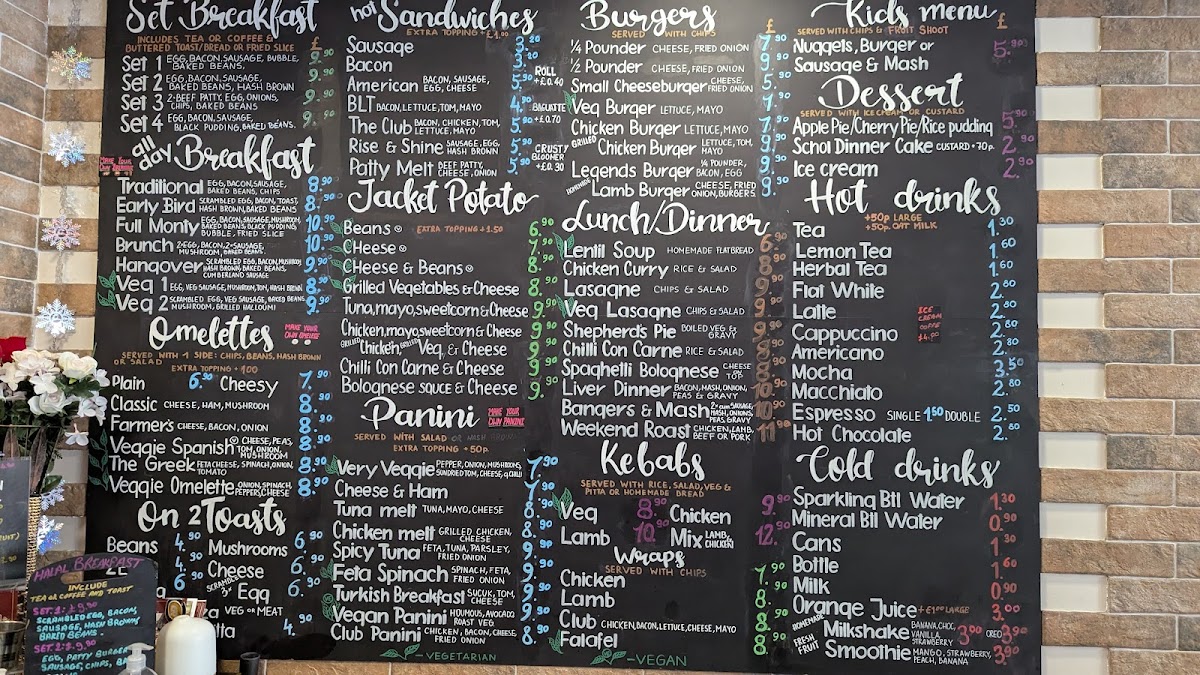 Set Breakfast £
INCLUDES TEA OR COFFEE &
BUTTERED TOAST/BREAD OR FRIED SLICE
Set 1 EGG, BACON, SAUSAGE, BUBBLE, BAKED BEANS.
Set 2 EGG, BACON, SAUSAGE, BAKED BEANS, HASH BROWN
Set 3 2-BEEF PATTY, EGG, ONIONS, CHIPS, BAKED BEANS
Set 4 EGG, BACON, SAUSAGE, BLACK PUDDING, BAKED BEANS.
all day Breakfast
Traditional EGG, BACON, SAUSAGE, BEANS, CHIPS
Early Bird SCRAMBLED EGG, BACON, TOAST, HASH BROWN, BAKED BEANS
Full Monty EGG, BACON, SAUSAGE, MUSHROOM, BAKED BEANS, BLACK PUDDING, BUBBLE, FRIED SLICE
Brunch 2-EGG, BACON, 2-SAUSAGE, MUSHROOM, BAKED BEANS.
Hangover SCRAMBLED EGG, BACON, MUSHROOM, HASH BROWN, BAKED BEANS, CUMBERLAND SAUSAGE
Veg 1 EGG, VEG SAUSAGE, MUSHROOM, TOM, HASH BROWN
Veg 2 SCRAMBLED EGG, VEG SAUSAGE, BAKED BEANS, MUSHROOM, GRILLED HALLOUMI
Omelettes MAKE YOUR OWN OMELETTE
SERVED WITH 1 SIDE: CHIPS, BEANS, HASH BROWN
OR SALAD
EXTRA TOPPING +1.00
Plain 6.90 Cheesy
Classic CHEESE, HAM, MUSHROOM
Farmers CHEESE, BACON, ONION
Veggie Spanish CHEESE, PEAS, TOM, ONION, MUSHROOM
The Greek FETA CHEESE, SPINACH, ONION, TOMATO
Veggie Omelette ONION, SPINACH, PEPPERS, CHEESE
On 2 Toasts
Beans 4.90 Mushrooms 6.90
Cheese
SCRAMBLED Egg
VEG OR MEAT
4.90
HALAL BREAKFAST
INCLUDE
TEA OR COFFEE AND TOAST
SET 1: £9,90
SCRAMBLED EGG, BACON,
SAUSAGE, HASH BROWNS
BAKED BEANS
SET 2: £ 9,90
EGG, PATTY BURGER
SAUSAGE, CHIPS
hot Sandwiches £
EXTRA TOPPING +£1.00
Sausage 3.20
Bacon
American BACON, SAUSAGE, EGG, CHEESE
BLT BACON, LETTUCE, TOM, MAYO
The Club BACON, CHICKEN, TOM, LETTUCE, MAYO
Rise & Shine SAUSAGE, EGG, HASH BROWN
Patty Melt BEEF PATTY, CHEESE, ONION
ROLL +£0.40
BAGUETTE +£0.70
CRUSTY BLOOMER +£0.30
Jacket Potato
Beans EXTRA TOPPING +1.50
Cheese
Cheese & Beans
Grilled Vegetables & Cheese
Tuna, mayo, sweetcorn & Cheese
Chicken, mayo, sweetcorn & Cheese
GRILLED Chicken, GRILLED Veg, & Cheese
Chilli Con Carne & Cheese
Bolognese sauce & Cheese
Panini MAKE YOUR OWN PANINI
SERVED WITH SALAD OR HASH BROWN
EXTRA TOPPING +50p.
Very Veggie PEPPER, ONION, MUSHROOMS, SUNDRIED TOM, CHEESE, & CHILLI
Cheese & Ham
Tuna melt TUNA, MAYO, CHEESE
Chicken melt GRILLED, CHICKEN, CHEESE
Spicy Tuna FETA, TUNA, PARSLEY, FRIED ONION
Feta Spinach SPINACH, FETA, FRIED ONION
Turkish Breakfast SUCUK, TOM, CHEESE
Vegan Panini HOUMOUS, AVOCADO ROAST VEG
Club Panini CHICKEN, BACON, CHEESE, FRIED ONION 8.90
- VEGETARIAN
Burgers £
SERVED WITH CHIPS
¼ Pounder CHEESE, FRIED ONION
½ Pounder CHEESE, FRIED ONION
Small Cheeseburger CHEESE, FRIED ONION
Veg Burger LETTUCE, MAYO
Chicken Burger LETTUCE, MAYO
GRILLED Chicken Burger LETTUCE, TOM, MAYO
Legends Burger ¼ POUNDER, BACON, EGG
HOMEMADE Lamb Burger CHEESE, FRIED ONION, BURGERS
Lunch/Dinner
Lentil Soup HOMEMADE FLATBREAD
Chicken Curry RICE & SALAD
Lasagne CHIPS & SALAD
Veg Lasagne CHIPS & SALAD
Shepherds Pie BOILED VEG & GRAVY
Chilli Con Carne RICE & SALAD
Spaghetti Bolognese CHEESE TOP
Liver Dinner BACON, MASH, ONION, PEAS & GRAVY
Bangers & Mash 2-CUM SAUSAGE, MASH, ONIONS, PEAS, GRAVY
Weekend Roast CHICKEN, LAMB, BEEF OR PORK 11.90
Kebabs
SERVED WITH RICE, SALAD, VEG &
PITTA OR HOMEMADE BREAD
Veg 8.90 Chicken 9.90
Lamb 10.90 Mix LAMB, & CHICKEN 12.90
Wraps
SERVED WITH CHIPS
Chicken 7.90
Lamb
Club CHICKEN, BACON, LETTUCE, CHEESE, MAYO
Falafel
- VEGAN
Kids menu £
SERVED WITH CHIPS & FRUIT SHOOT
Nuggets, Burger or
Sausage & Mash 5.90
Dessert
SERVED WITH ICE CREAM OR CUSTARD
Apple Pie/Cherry Pie/Rice pudding 5.90
Schol Dinner Cake CUSTARD + 70p.
Ice cream 2.90
Hot drinks
+50p LARGE
+50p. OAT MILK
Tea 1.30
Lemon Tea 1.60
Herbal Tea 1.60
Flat White 2.80
Latte 2.80
Cappuccino 2.80
Americano
Mocha 3.50
Macchiato 2.80
Espresso SINGLE 1.60 DOUBLE 2.50
Hot Chocolate 2.80
ICE CREAM COFFE £4.00
Cold drinks
Sparkling Btl Water 1.30
Mineral Btl Water 0.90
Cans
Bottle 1.60
Milk 0.90
Orange Juice +£1.00 LARGE 3.00
HOMEMADE Milkshake BANANA, CHOC, VANILLA, STRAWBERRY 3.00 OREO 3.90
FRESH FRUIT Smoothie MANGO, STRAWBERRY, PEACH, BANANA 3.90